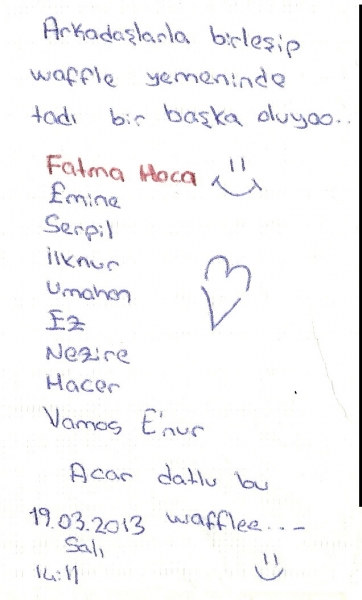 Arkadaşlarla birleşip
waffle yemeninde
tadı bir başka oluyoo..
Fatma Hoca
Emine
Serpil
ilknur
Umahan
Ez
Nezire
Hacer
Vamos E'nur
Acar datlu bu
19.03.2013 wafflee...
Salı
14:11